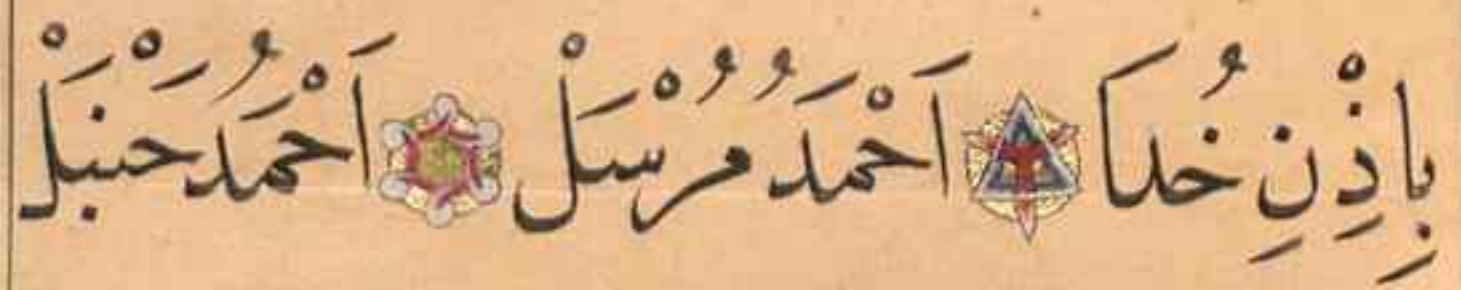 بِاِذْنِ خُدَا اَحْمَدُ مُرْسَلْ اَحْمَدُ حَنْبَلْ